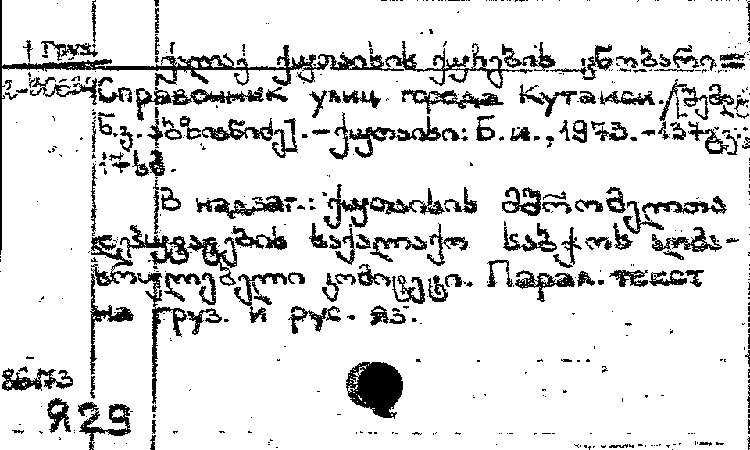 Груз.
ქალაქ ქუთაისის ქუჩების ცნობარი =
Справочник улиц города Кутаиси. / [შემდგ.
ნ. ვ. აბზიანიძე]. – ქუთაისი: Б. и., 1973. – 137 გვ.;
17 სმ.
В надзаг.: ქუთაისის მშრომელთა
დეპუტატების საქალაქო საბჭოს აღმა-
სრულებელი კომიტეტი. Парал. текст
на груз. и рус. яз.
Я29